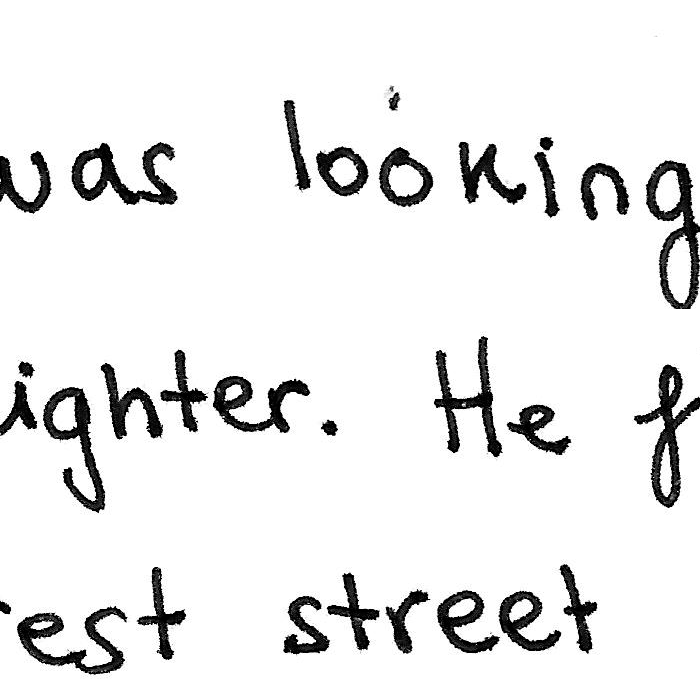 was looking
ighter. He f
est street